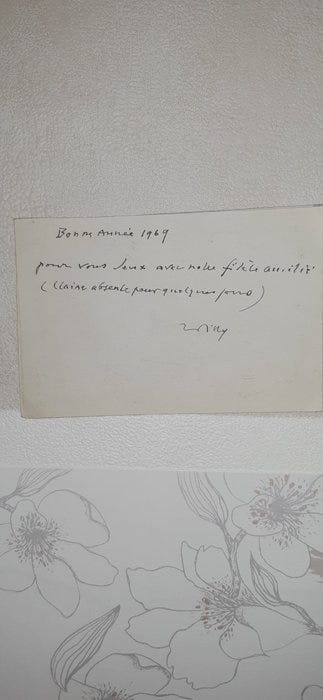 Bonne Année 1969
pour vous deux avec notre fidèle amitié
(Claire absente pour quelques jours)
Willy